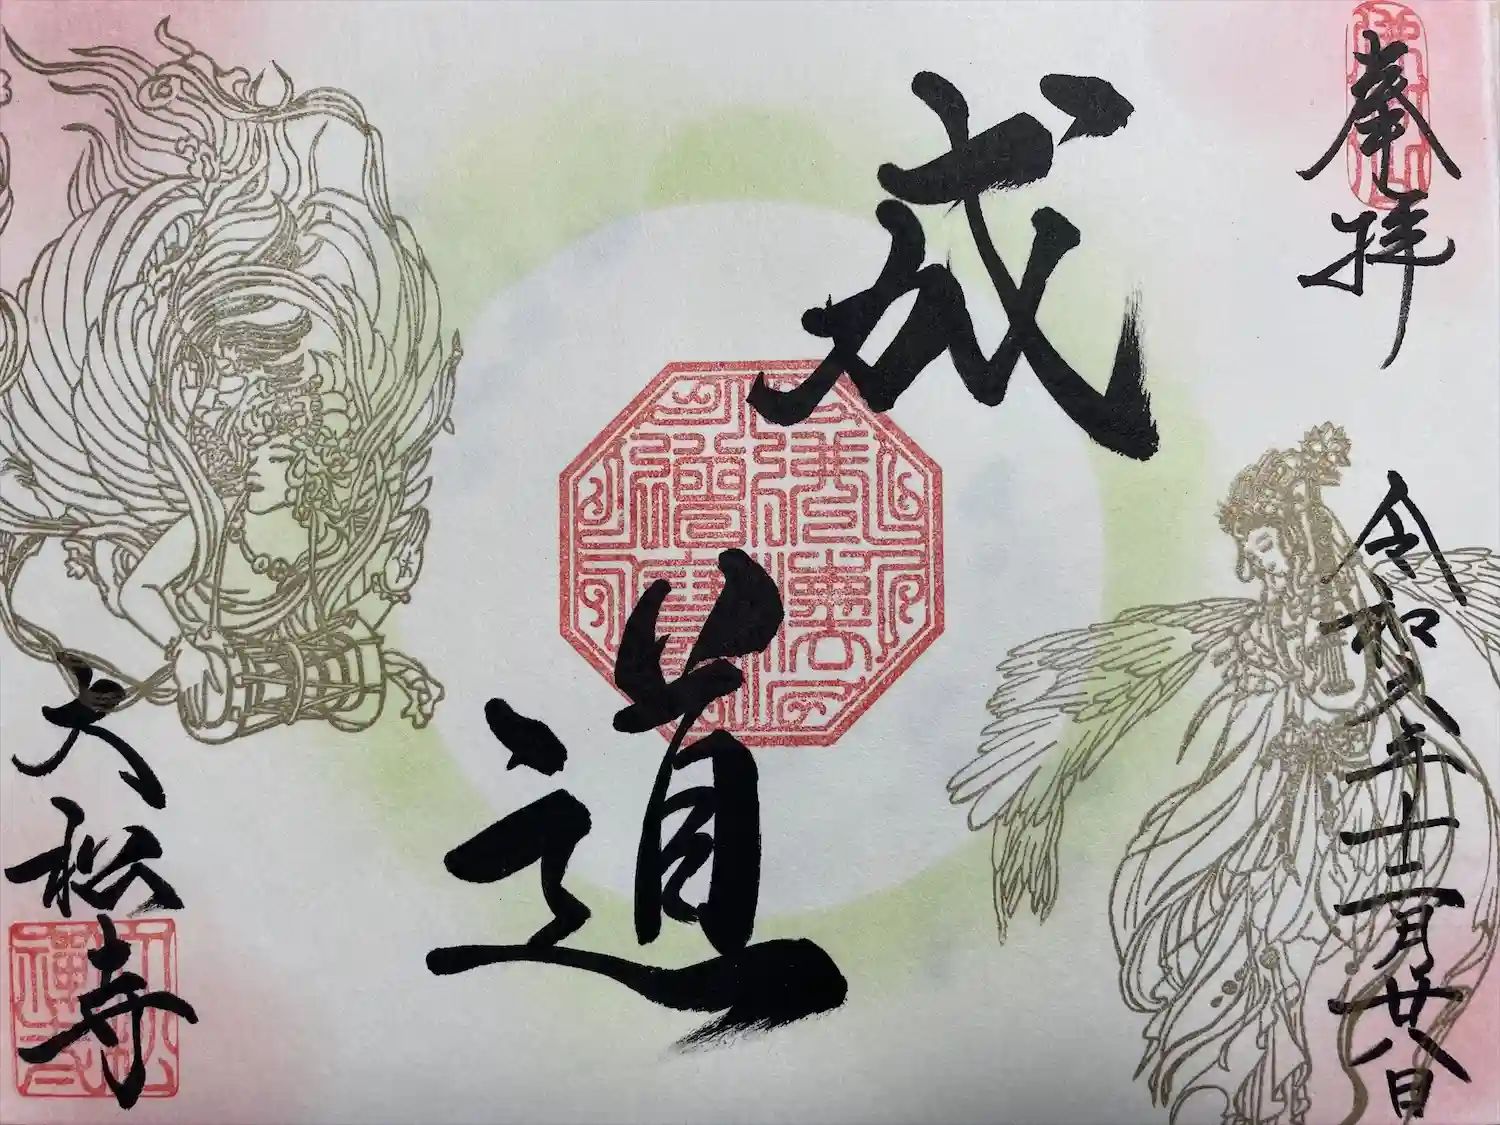 奉拝
令和六年十二月廿八日
成道
大松寺